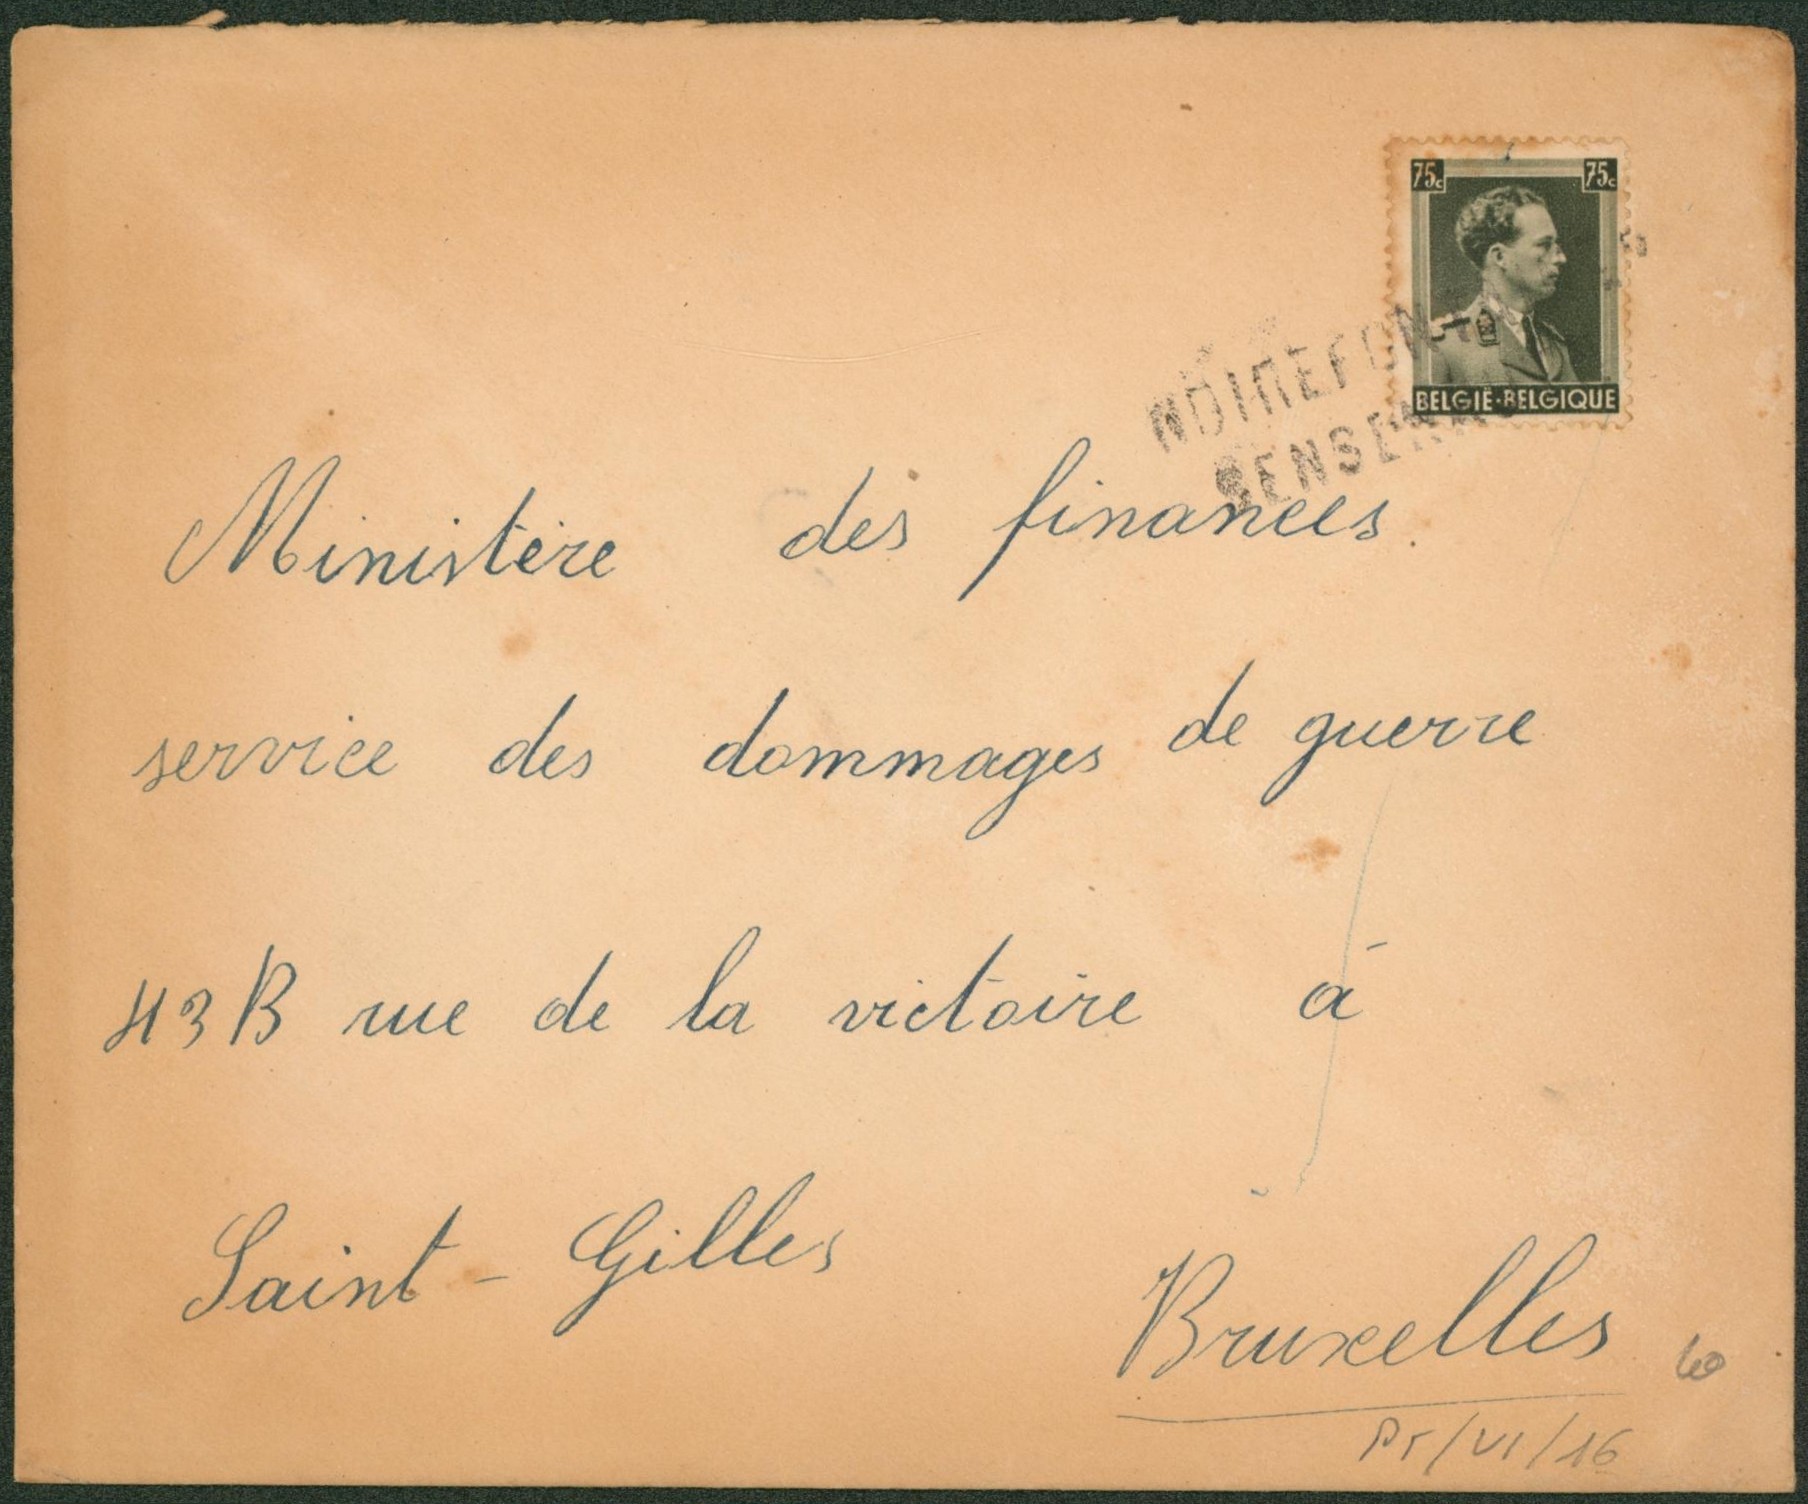 75c 75c
BELGIË-BELGIQUE
Ministère des finances
service des dommages de guerre
43 B rue de la victoire à
Saint - Gilles
Bruxelles